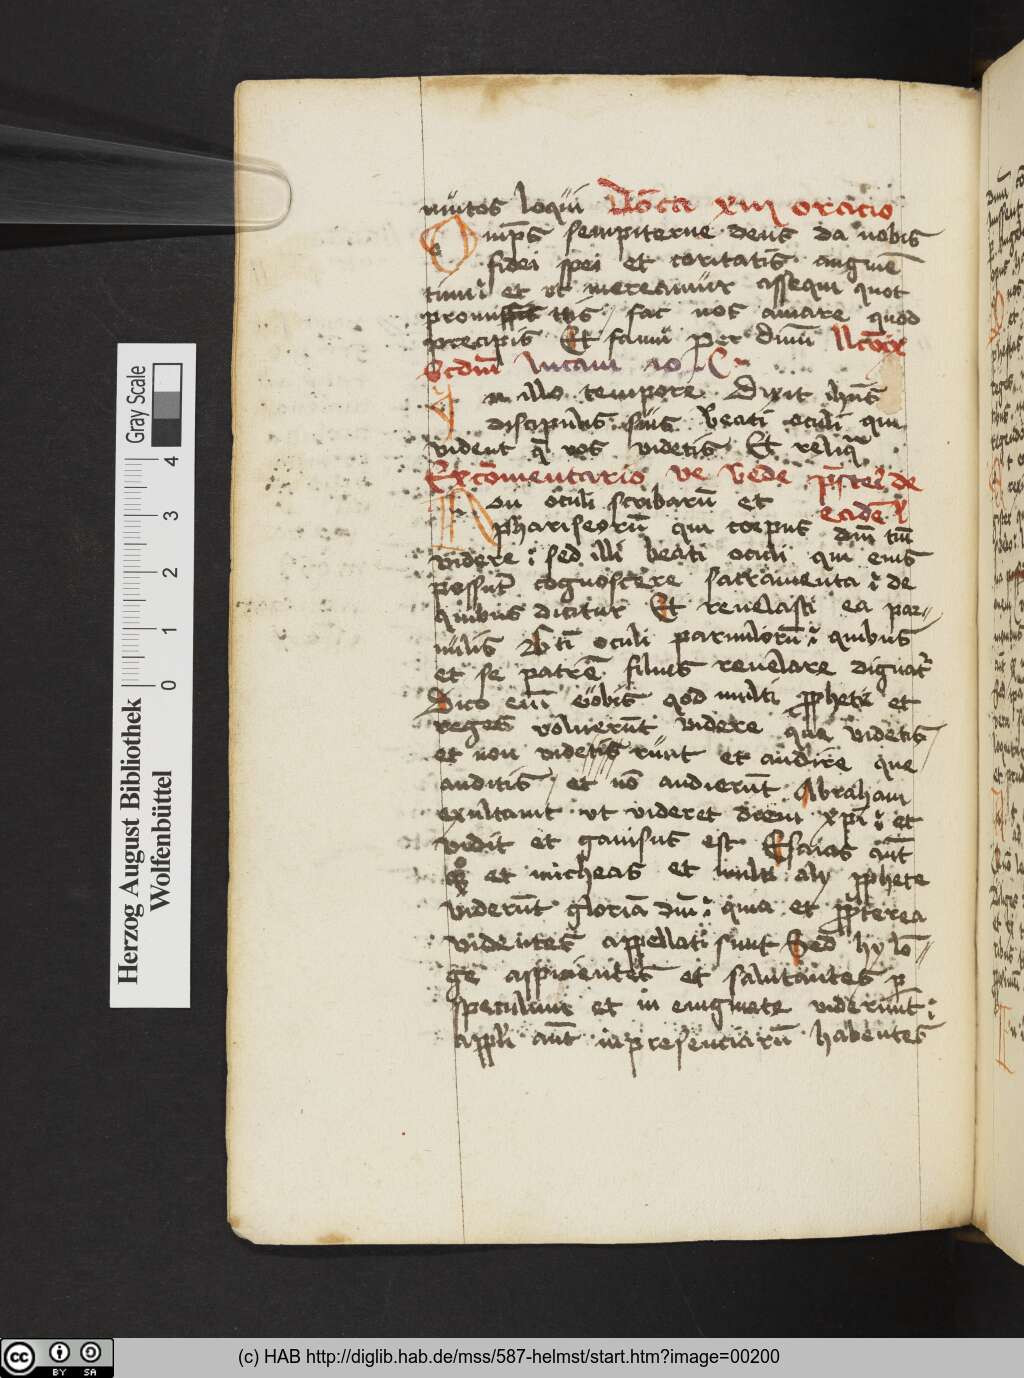 mutos loqui Dōica xiii oracio
Omps̄ sempiterne deus da nobis
fidei spei et caritatis augmē
tum et ut mereamur assequi quot
promissis ttis fac nos amare quod
precipis Et famu per dnm̄ llc̄o
Scdm̄ lucam 10 C
In illo tempore Dixit ihūs
discipulis suis beati oculi qui
vident q̄ vos videtis Et reliq
Ex cōmentario ve bede p̄sbrī de
Non oculi scribarū et eadē l
phariseorū qui corpus dnī tm̄
videre sed illi beati oculi qui eius
possūt cognoscere sacramenta de
quibus dicitur Et revelasti ea par
vulis Btī oculi parvulorū quibus
et se patrē filius revelare dignat
Dico enī vobis qod multi pphete et
reges voluerūt videre que videtis
et non videtis rūnt et audire que
auditis et nō audierūt Abraham
exultavit ut videret diem xpī et
vidit et gavisus est Esaias aūt
qq et micheas et multi alij pphete
viderūt gloriā dnī quia et ppterea
videntes appellati sunt Sed hy lō
ge aspicientes et salutantes p
speculum et in enigmate viderunt
appl̄i aūt in presenciarū habentes
Herzog August Bibliothek
Wolfenbüttel
Gray Scale
0 1 2 3 4
cc BY SA
(c) HAB http://diglib.hab.de/mss/587-helmst/start.htm?image=00200